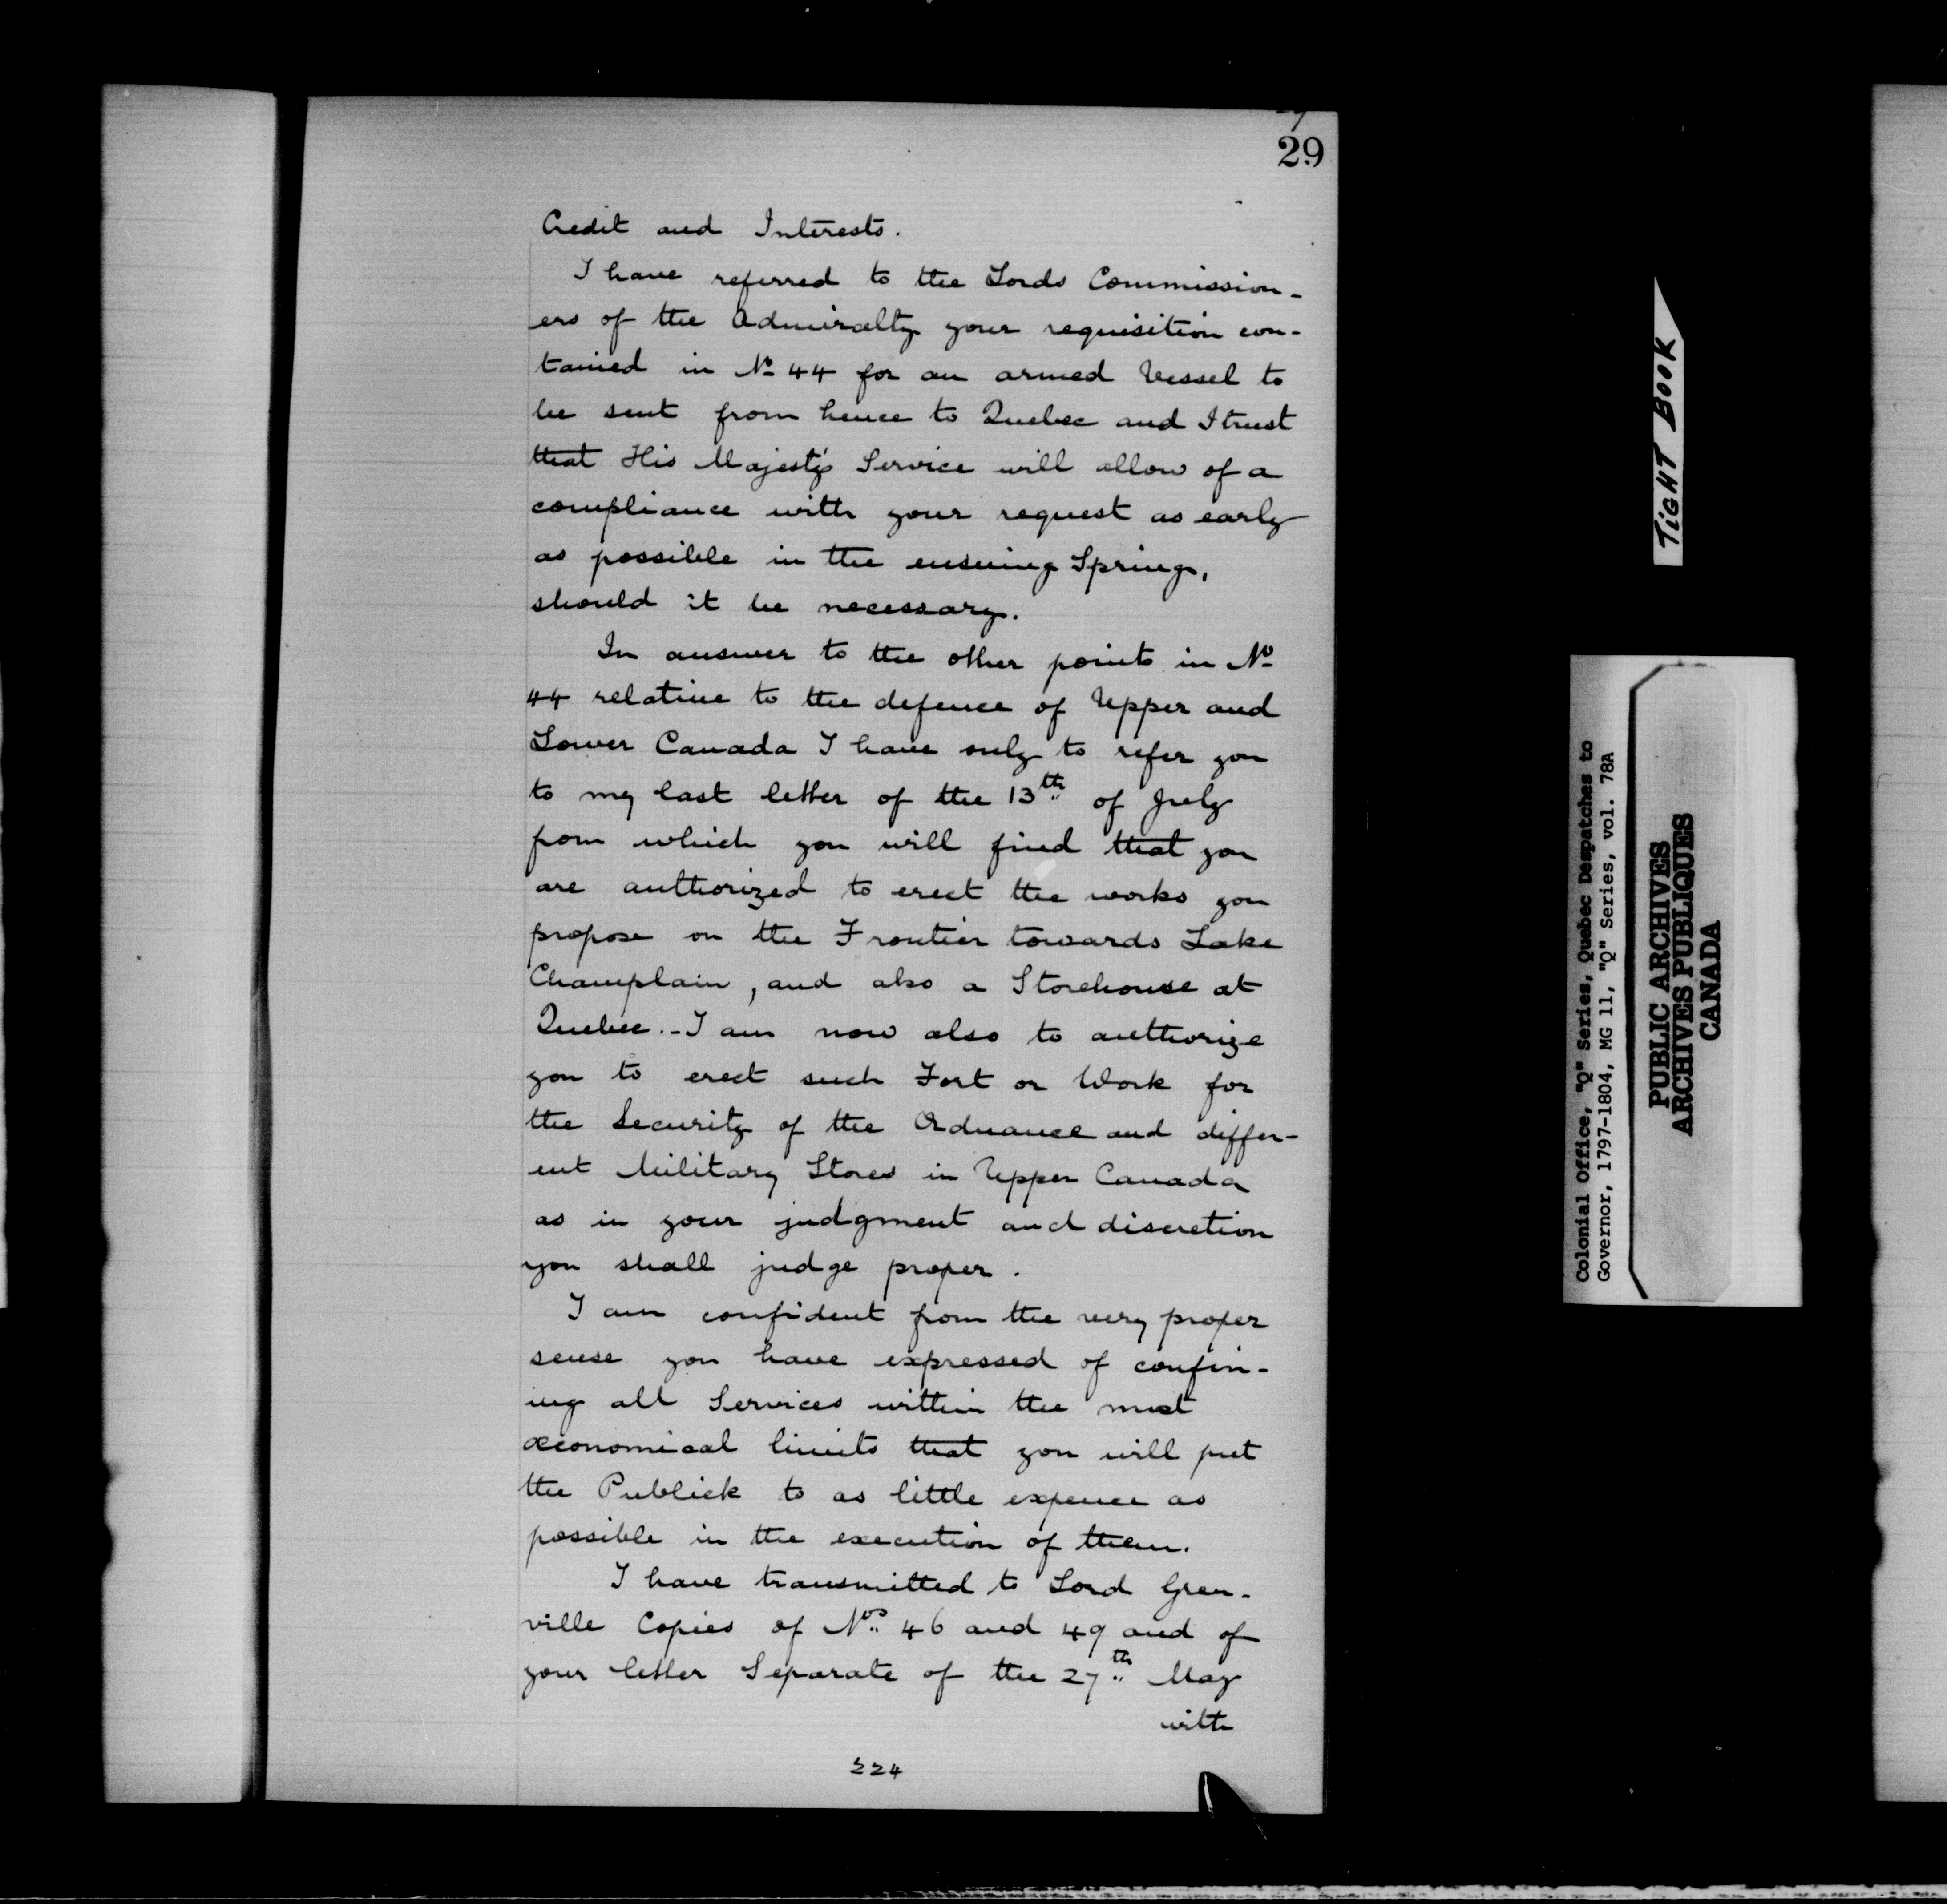 29
Credit and Interests.
I have referred to the Lords Commission-
ers of the Admiralty your requisition con-
tained in No 44 for an armed Vessel to
be sent from hence to Quebec and I trust
that His Majesty's Service will allow of a
compliance with your request as early
as possible in the ensuing Spring,
should it be necessary.
In answer to the other points in No
44 relative to the defence of Upper and
Lower Canada I have only to refer you
to my last letter of the 13th of July
from which you will find that you
are authorized to erect the works you
propose on the Frontier towards Lake
Champlain, and also a Storehouse at
Quebec.- I am now also to authorize
you to erect such Fort or Work for
the Security of the Ordnance and differ-
ent Military Stores in Upper Canada
as in your judgment and discretion
you shall judge proper.
I am confident from the very proper
sense you have expressed of confin-
ing all Services within the most
œconomical limits that you will put
the Publick to as little expence as
possible in the execution of them.
I have transmitted to Lord Gren-
ville Copies of Nos. 46 and 49 and of
your letter Separate of the 27th May
with
224
TIGHT BOOK
Colonial Office, "Q" Series, Quebec Despatches to
Governor, 1797-1804, MG 11, "Q" Series, vol. 78A
PUBLIC ARCHIVES
ARCHIVES PUBLIQUES
CANADA